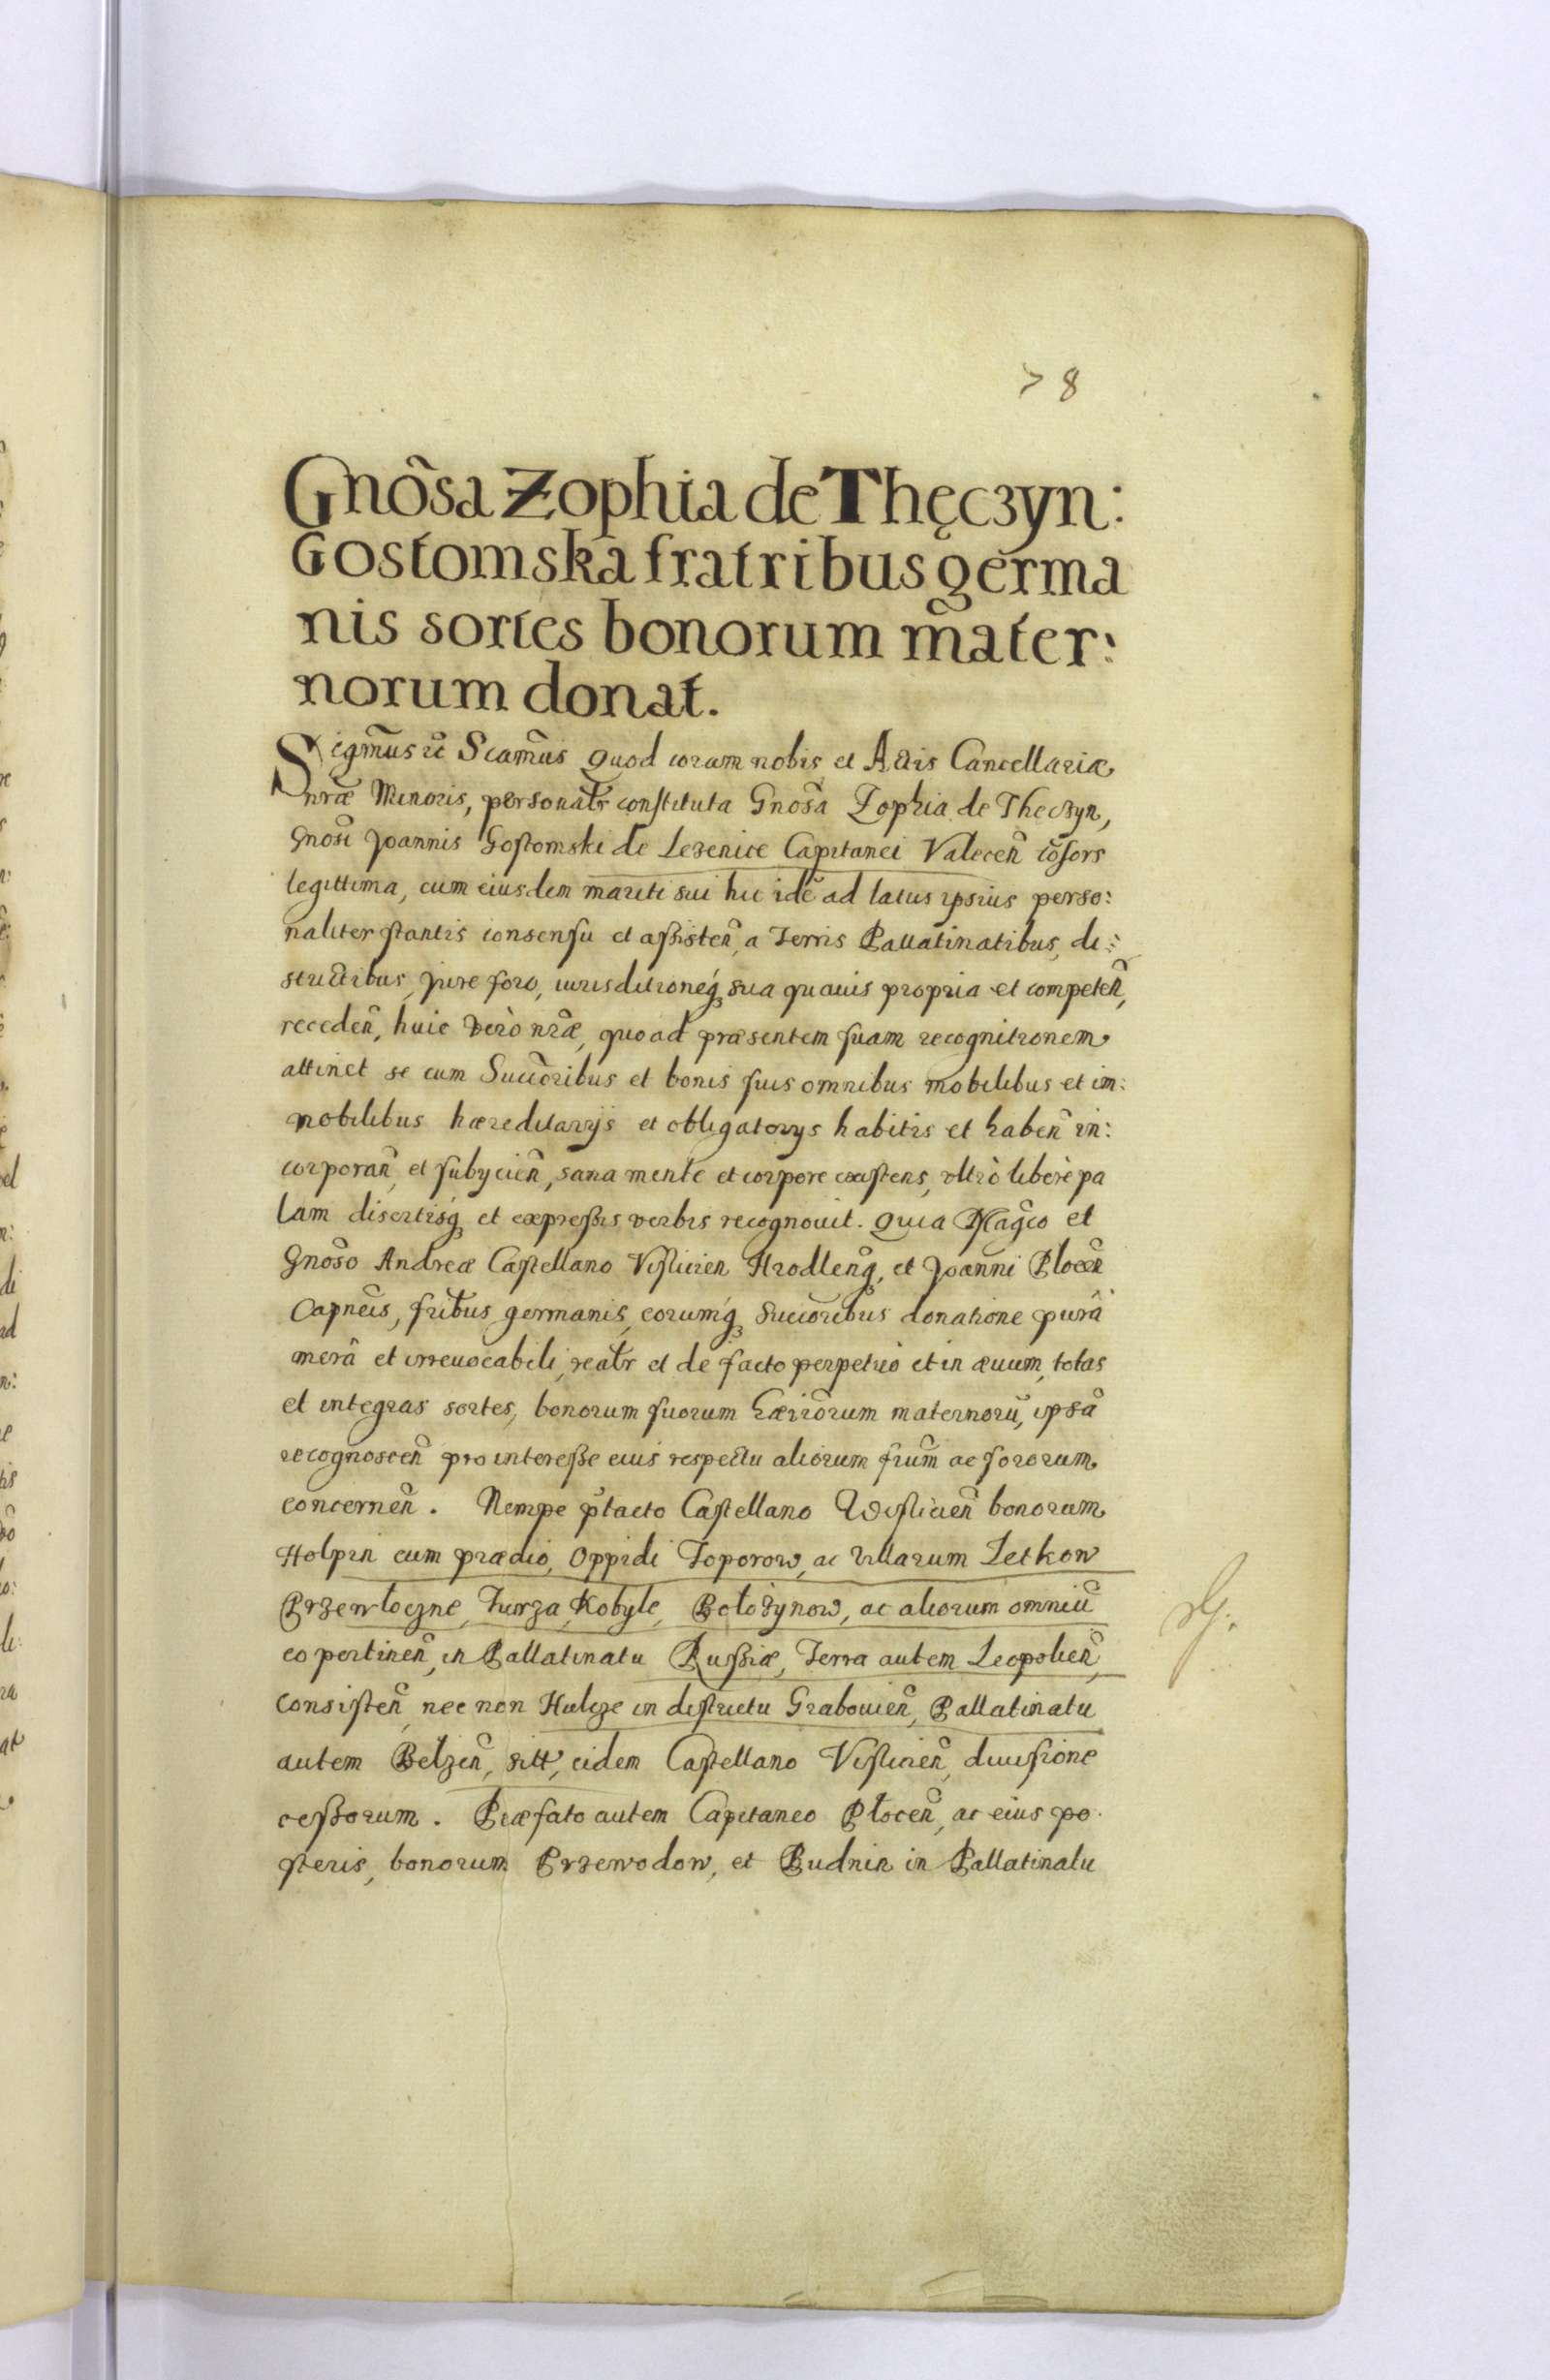 78
Gnõsa Zophia de Thęczyn:
Gostomska fratribus germa
nis sortes bonorum mater:
norum donat.
Sigmũs etc Scim̃us Quod coram nobis et Actis Cancellariæ
nr̃æ Minoris, personalr̃ constituta Gnõsa Zophia de Theczyn,
Gnõsi Joannis Gostomski de Lezenice Capitanei Valecen̄ cõsors
legittima, cum eiusdem mariti sui hic idẽ ad latus ipsius perso:
naliter stantis consensu et assisten̄, a Terris Pallatinatibus, di:
strictibus, jure foro, iurisditioneq́ꝫ sua quauis propria et competen̄,
receden̄, huic verò nr̃æ, quo ad præsentem suam recognitionem
attinet se cum Succ̃oribus et bonis suis omnibus mobilibus et im:
mobilibus hæreditarijs et obligatorijs habitis et haben̄ in:
corporan̄, et subijcien̄, sana mente et corpore existens, vltrò liberè pa
lam disertisq́ꝫ et expressis verbis recognouit. Quia Mag̃co et
Gnõso Andreæ Castellano Visliciẽn Hrodlen̄q, et Joanni Plocen̄
Capn̄eis, fr̃ibus germanis, eorumq́ꝫ Succ̃oribus donatione purâ
merâ et irreuocabili, realr̃ et de facto perpetuò et in æuum, totas
et integras sortes, bonorum suorum hæ̃rorum maternorũ, ipsã
recognoscen̄ pro interesse eius respectu aliorum fr̃um ac sororum
concernen̄. Nempe p̃tacto Castellano Wisliciẽn bonorum
Holpin cum prædio, Oppidi Toporow, ac Villarum Zetkow
Przewłoczne, Turza, Kobyle, Bołożynow, ac aliorum omniũ
eo pertinen̄, in Pallatinatu Russiæ, Terra autem Leopolien̄,
consisten̄, nec non Hulcze in districtu Grabouien̄, Pallatinatu
autem Belzen̄, sitt, eidem Castellano Vislicien̄, diuisione
cessorum. Præfato autem Capitaneo Płocen̄, ac eius po
steris, bonorum Przewodow, et Budnin in Pallatinatu